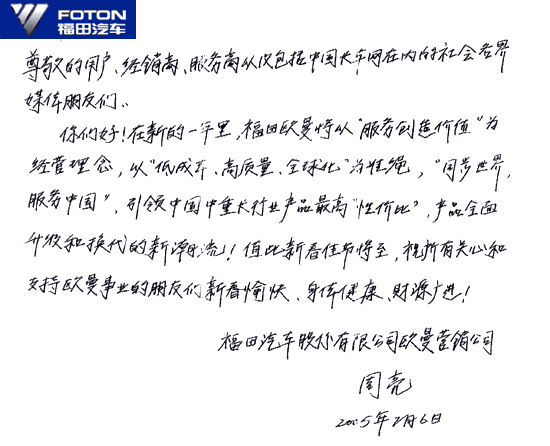 FOTON
福田汽车
尊敬的用户、经销商、服务商以及包括中国卡车网在内的社会各界
媒体朋友们:
你们好!在新的一年里,福田欧曼将以"服务创造价值"为
经营理念,以"低成本、高质量、全球化"为准绳,"同步世界,
服务中国",引领中国中重卡行业产品最高"性价比",产品全面
升级和换代的新潮流!值此新春佳节将至,祝所有关心和
支持欧曼事业的朋友们新春愉快、身体健康、财源广进!
福田汽车股份有限公司欧曼营销公司
周亮
2005年2月6日